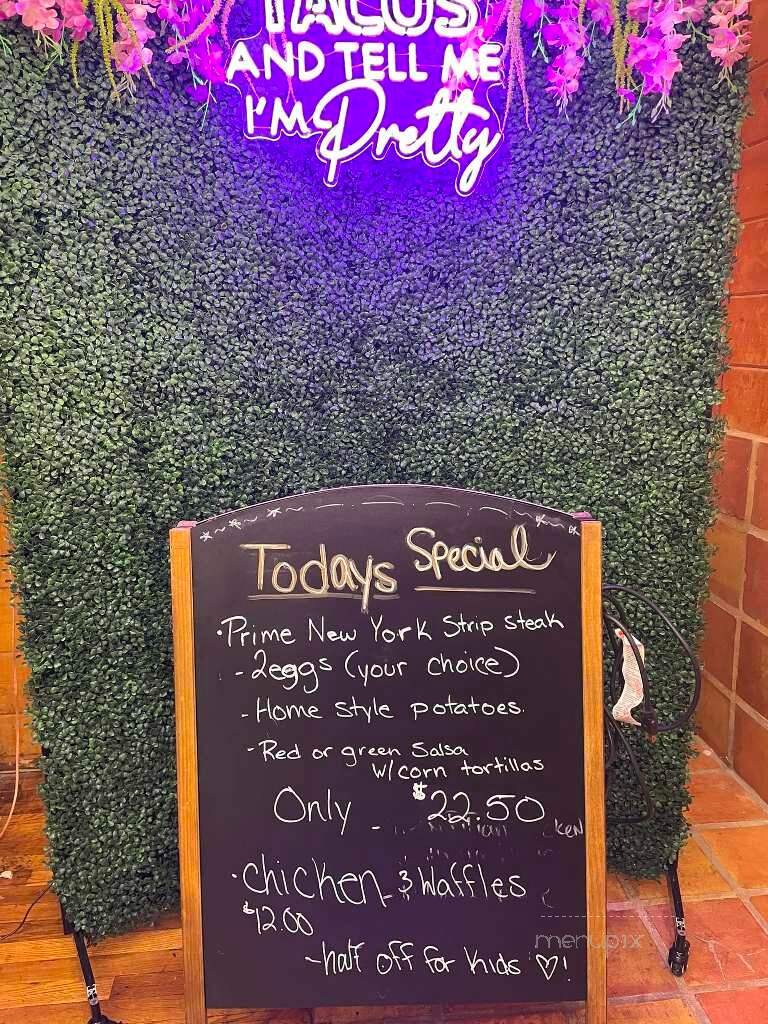 TACOS
AND TELL ME
I'M Pretty
Todays Special
• Prime New York Strip steak
- 2eggs (your choice)
- Home style potatoes.
- Red or green Salsa
W/corn tortillas
Only $22.50
• chicken & Waffles
$12.00
- half off for kids ♡!
menupix